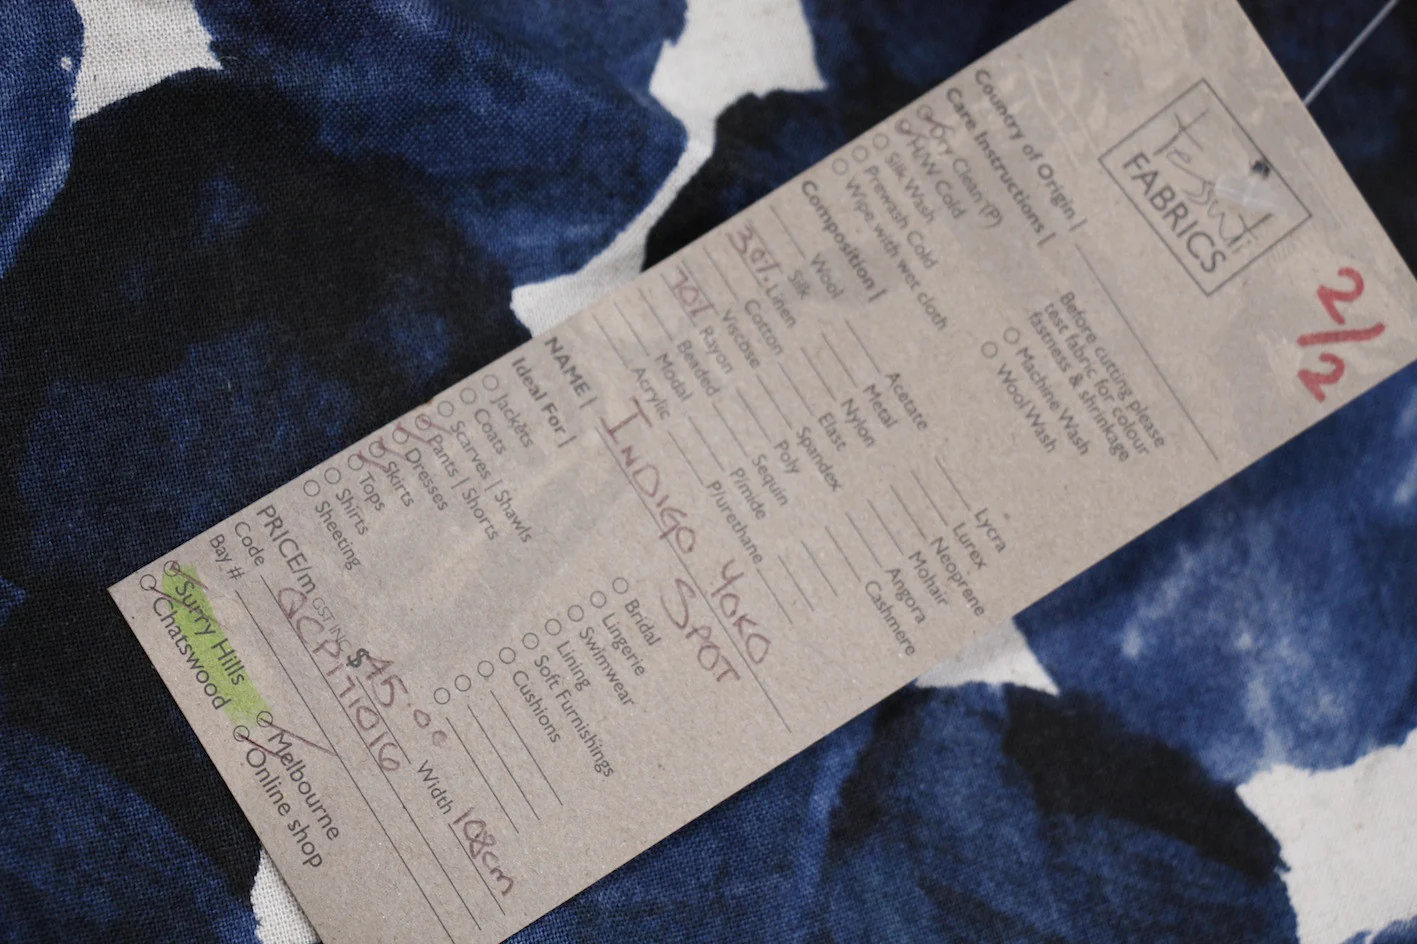 Tessuti
FABRICS
2/2
Country of Origin |
Care Instructions |
Dry Clean (P)
H/W Cold
Silk Wash
Prewash Cold
Wipe with wet cloth
Before cutting please
test fabric for colour
fastness & shrinkage
Machine Wash
Wool Wash
Composition |
Wool Acetate Lycra
Silk Metal Lurex
30% Linen Nylon Neoprene
Cotton Elast Mohair
Viscose Spandex Angora
70% Rayon Poly Cashmere
Beaded Sequin
Modal P/mide
Acrylic P/urethane
NAME | INDIGO YOKO
SPOT
Ideal For |
Jackets Bridal
Coats Lingerie
Scarves | Shawls Swimwear
Pants | Shorts Lining
Dresses Soft Furnishings
Skirts Cushions
Tops
Shirts
Sheeting
PRICE/m GST INC $45.00 Width 108cm
Code QCP171016
Bay #
Surry Hills Melbourne
Chatswood Online shop